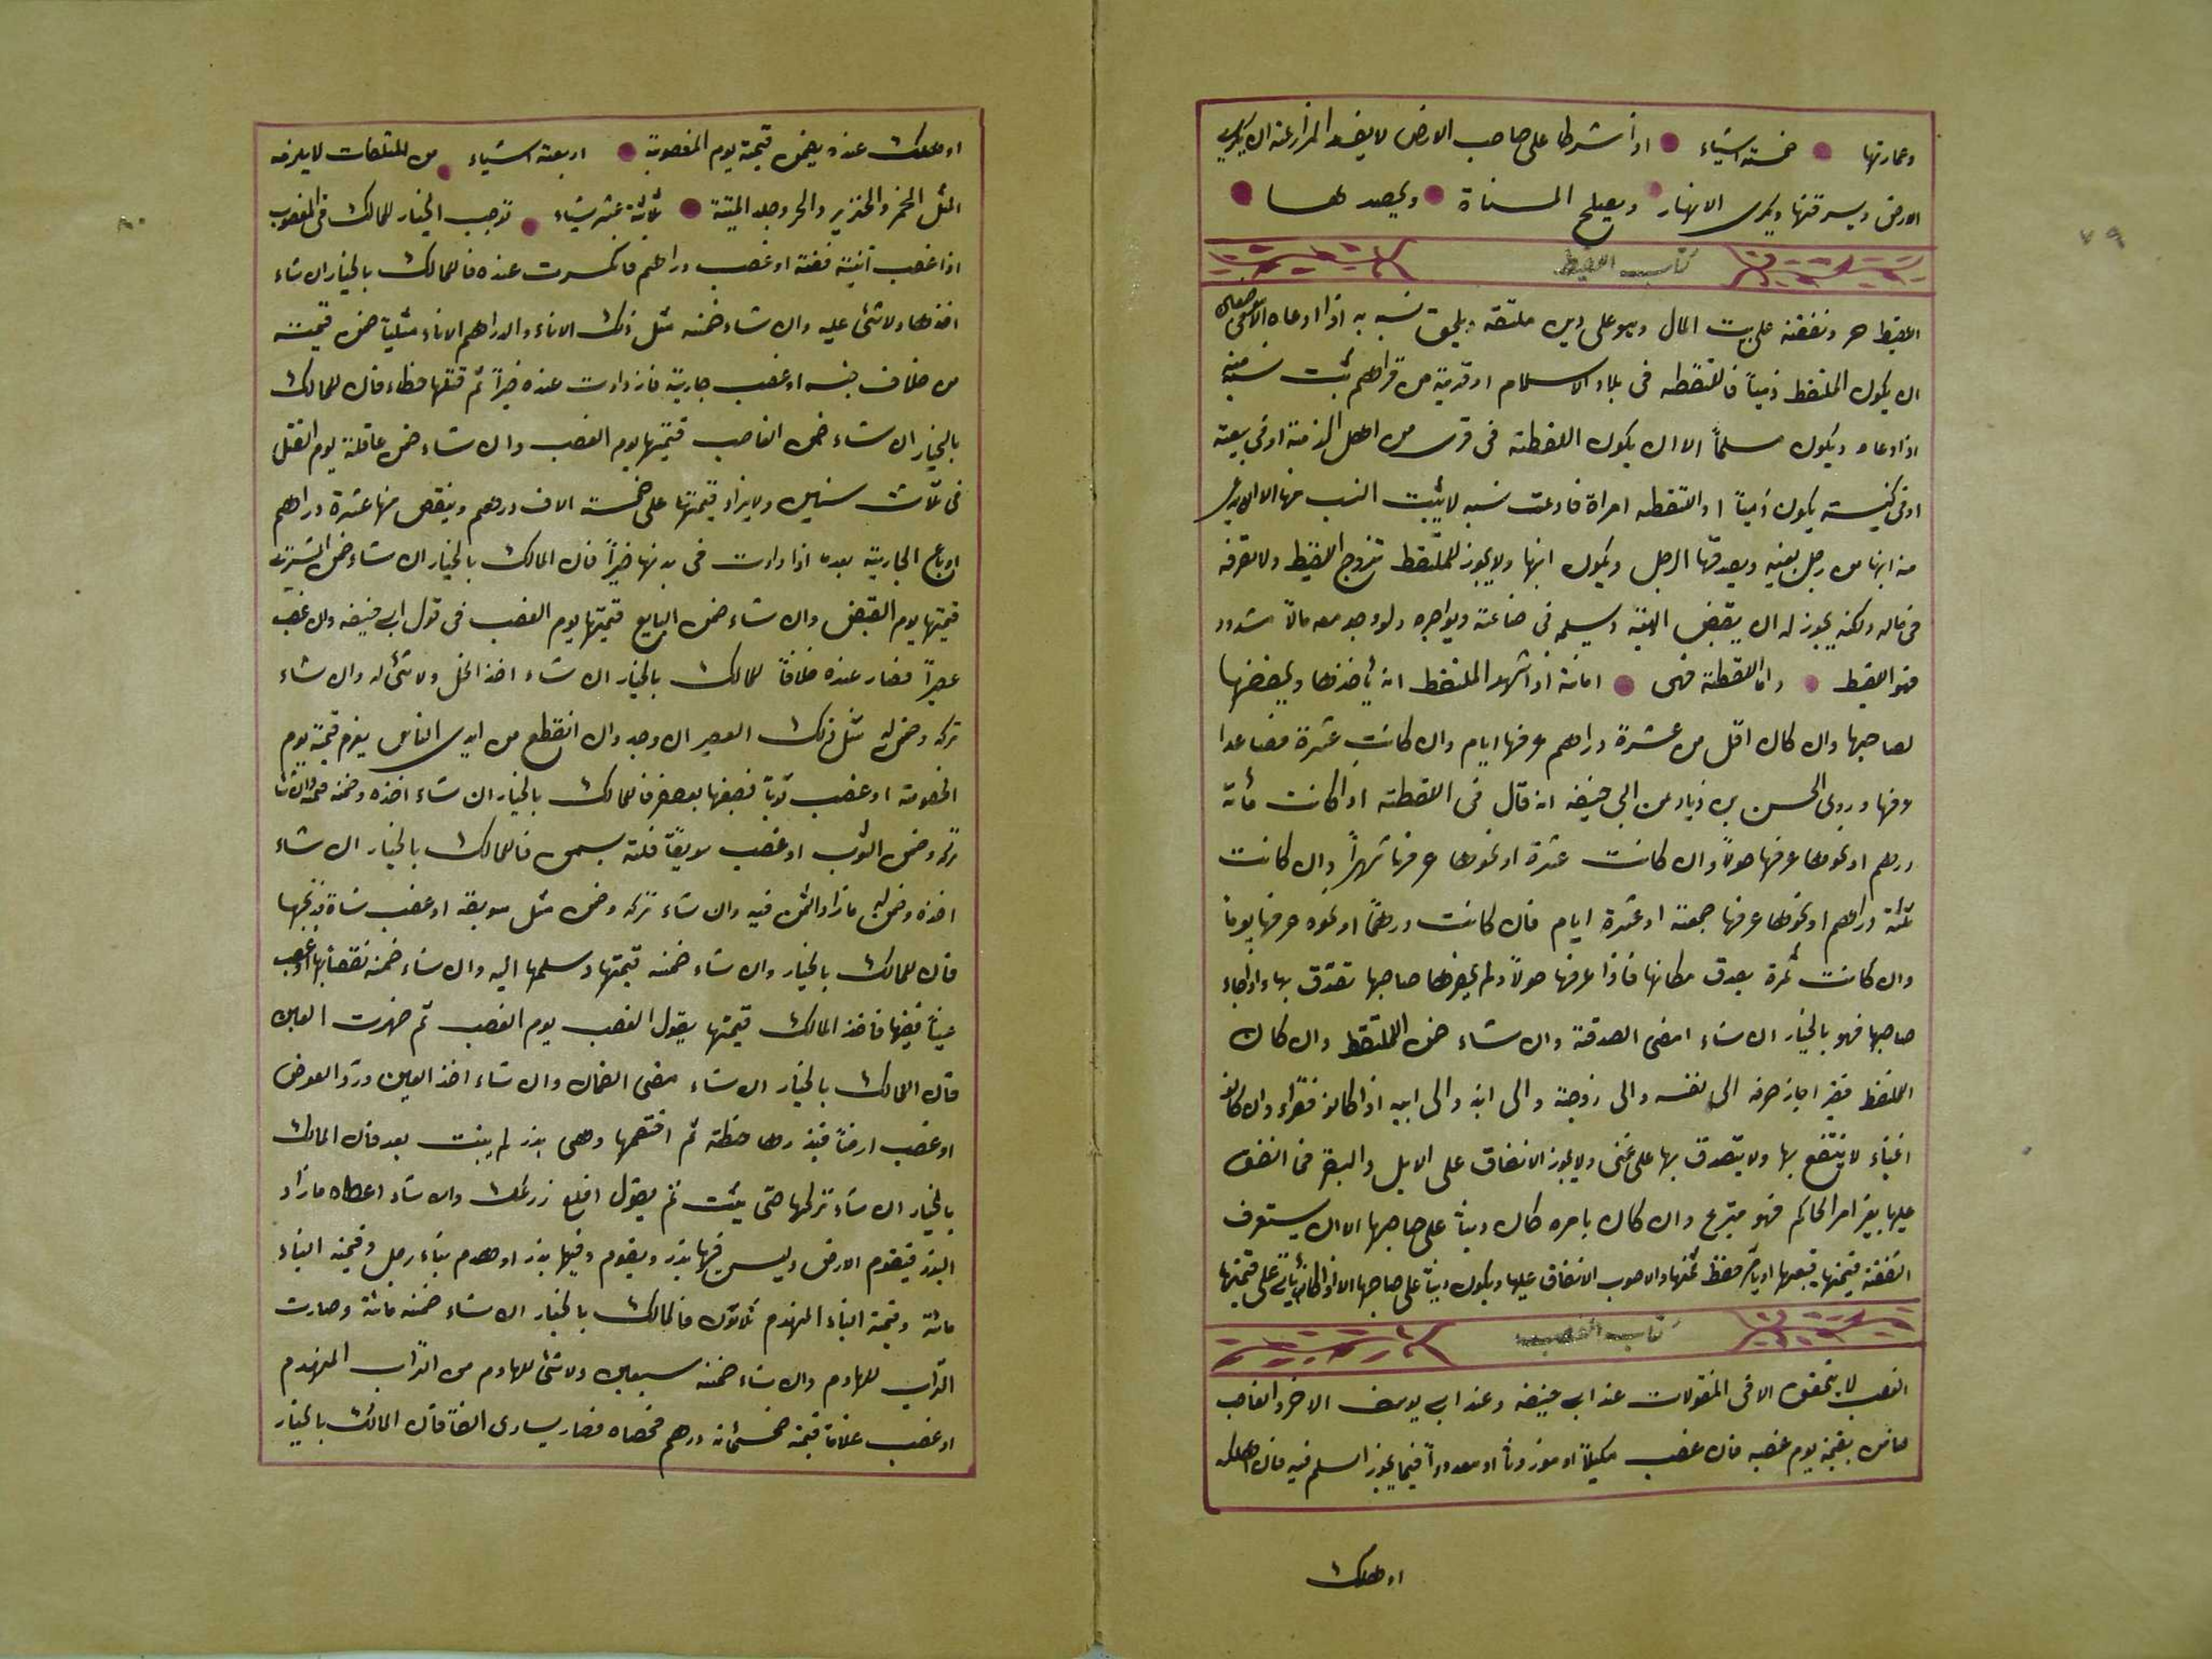 ٧٩
وعمارتها خمسة اشياء اذا شرطا على صاحب الارض لا يفسد المزارعة ان يكرب
الارض ويسرقنها ويكرى الانهار ويصلح المسناة ويحصد لها
كتاب اللقيط
اللقيط حر ونفقته على بيت المال وهو على دين ملتقه ويلحق نسبه به اذا ادعاه الا
ان يكون الملتقط ذمياً فالتقطه فى بلاد الاسلام او قرية من قراهم ثبت نسبه منه
اذا ادعاه ويكون مسلماً الا ان يكون اللقطة فى قرى من اهل الذمة او فى بيعة
او فى كنيسة يكون ذمياً او التقطه امراة فادعت نسبه لا يثبت النسب منها الا ان يدعى
منه ابنها من رجل بعينه ويصدقها الرجل ويكون ابنها ولا يجوز للملتقط تزوج اللقيط ولا تصرفه
فى ماله ولكنه يجوز له ان يقبض الهبة ويسلمه فى صناعة ويواجره ولو وجد معه مالاً مشدود
فهو اللقيط واما اللقطة فهى امانة اذا اشهد الملتقط انه ياخذها ويحفظها
لصاحبها وان كان اقل من عشرة دراهم عرفها ايام وان كانت عشرة فصاعدا
عرفها وروى الحسن بن زياد عن ابى حنيفه انه قال فى اللقطته اذا كانت مأئة
درهم او نحوها عرفها حولاً وان كانت عشرة او نحوها عرفها شهراً وان كانت
ثلثة دراهم او نحوها عرفها جمعة او عشرة ايام فان كانت درهماً او نحوه عرفها يوماً
وان كانت ثمرة يصدق مكانها فاذا عرفها حولاً ولم يحضرها صاحبها تصدق بها واذا جاء
صاحبها فهو بالخيار ان شاء امضى الصدقة وان شاء ضمن الملتقط وان كان
الملتقط فقيرا جاز صرفه الى نفسه والى زوجة والى ابنه والى ابيه اذا كانوا فقراء وان كانوا
اغنياء لا ينتفع بها ولا يتصدق بها على غنى ولا يجوز الانفاق على الابل والبقر فما انفق
عليها بغير امر الحاكم فهو متبرع وان كان بامره كان ديناً على صاحبها الا ان يستغرق
النفقة قيمتها فيبيعها او يامر بحفظ ثمنها والاصوب الانفاق عليها ويكون ديناً على صاحبها الا اذا كان على قيمتها
كتاب الغصب
الغصب لا يتحقق الا فى المنقولات عند ابى حنيفه وعند ابى يوسف الاخر والغاصب
ضامن بقيمته يوم غصبه فان غصب مكيلاً او موزوناً او معدوداً فيما يجوز السلم فيه فان اهلكه
او هلك
او هلك عنده يضمن قيمة يوم المغصوبة اربعة اشياء من المتلفات لا يلزمه
المثل الخمر والخنزير والحر وجلد الميتة ثلاثة عشر شياء توجب الخيار للمالك فى المغصوب
اذا غصب انية فضة او غصب دراهم فانكسرت عنده فاللمالك بالخيار ان شاء
اخذها ولا شئ عليه وان شاء ضمنه مثل ذلك الاناء والدراهم الاناء مثلياً ضمن قيمته
من خلاف جنسه او غصب جارية فازدادت عنده خيراً ثم قتلها خطاء فان للمالك
بالخيار ان شاء ضمن الغاصب قيمتها يوم الغصب وان شاء ضمن عاقلة يوم القتل
فى ثلاث سنين ولا يزاد قيمتها على خمسة الاف درهم وينقص منها عشرة دراهم
او باع الجارية بعد ما ازدادت فى بدنها خيراً فان المالك بالخيار ان شاء ضمن المشترى
قيمتها يوم القبض وان شاء ضمن البايع قيمتها يوم الغصب فى قول ابى حنيفه وان غصب
عصيراً فصار عنده خلافاً للمالك بالخيار ان شاء اخذ الخل ولا شئ له وان شاء
تركه وضمن له مثل ذلك العصير ان وجد وان انقطع من ايدى الناس يغرم قيمة يوم
الخصومة او غصب ثوباً فصبغها بعصفر فاللمالك بالخيار ان شاء اخذه وضمنه قيمة وان شاء
تركه وضمن الثوب او غصب سويقاً فلته بسمن فاللمالك بالخيار ان شاء
اخذه وضمن له ما زاد الثمن فيه وان شاء تركه وضمن مثل سويقه او غصب شاة فذبحها
فان للمالك بالخيار وان شاء ضمنه قيمتها وسلمها اليه وان شاء ضمنه نقصانها او غصب
عيناً فيضها فاخذ المالك قيمتها بقول الغصب يوم الغصب ثم ظهرت العين
فان المالك بالخيار ان شاء مضى الضمان وان شاء اخذ العين ورد العوض
او غصب ارضاً فبذرها حنطة ثم اختصمها وهى بذر لم ينبت بعد فان المالك
بالخيار ان شاء تركها حتى ينبت ثم يقول اقلع زرعك وان شاء اعطاه ما زاد
البذر فيقوم الارض وليس فيها بذر ويقوم وفيها بذر او هدم بناء رجل وقيمة البناء
مائة وقيمة البناء المنهدم ثلاثون فالمالك بالخيار ان شاء ضمنه مائة وصارت
التراب للهادم وان شاء ضمنه سبعين ولا شئ للهادم من التراب المنهدم
او غصب غلاماً قيمته خمسمائة درهم فخصاه فصار يساوى الفاً فان المالك بالخيار